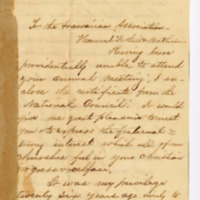 To the Hawaiian Association.
Having been
providentially unable to attend
your annual meeting, I en-
close the certificate from the
National Council. It would
give me great pleasure to meet
you & to express the fraternal &
strong interest which all of our
churches feel in your Christian
progress & welfare.
It was my privilege
twenty six years ago only to